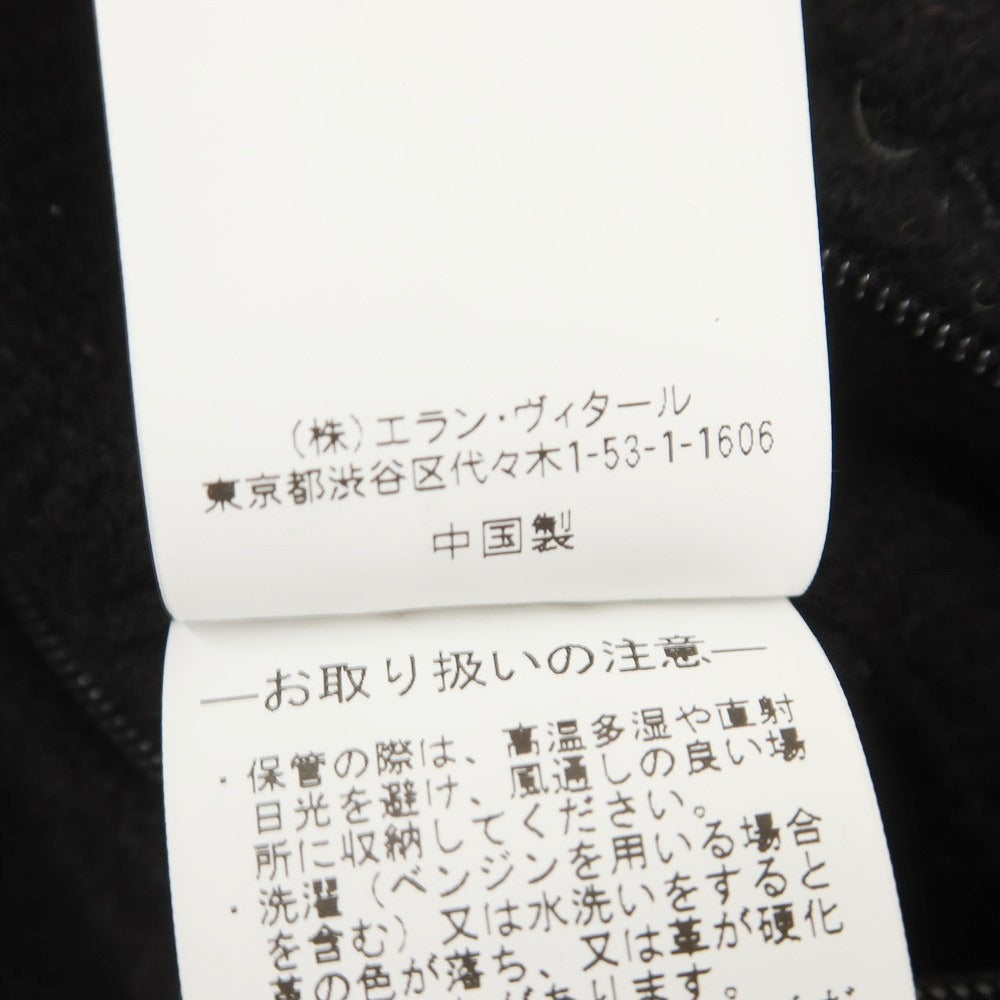 (株)エラン・ヴィタール
東京都渋谷区代々木1-53-1-1606
中国製
―お取り扱いの注意―
・保管の際は、高温多湿や直射
日光を避け、風通しの良い場
所に収納してください。
・洗濯(ベンジンを用いる場合
を含む)又は水洗いをすると
革の色が落ち、又は革が硬化